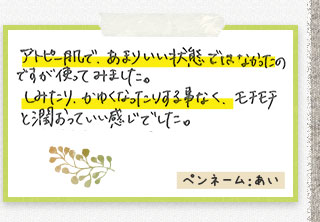 アトピー肌で、あまりいい状態ではなかったの
ですが使ってみました。
しみたり、かゆくなったりする事なく、モチモチ
と潤おっていい感じでした。
ペンネーム:あい